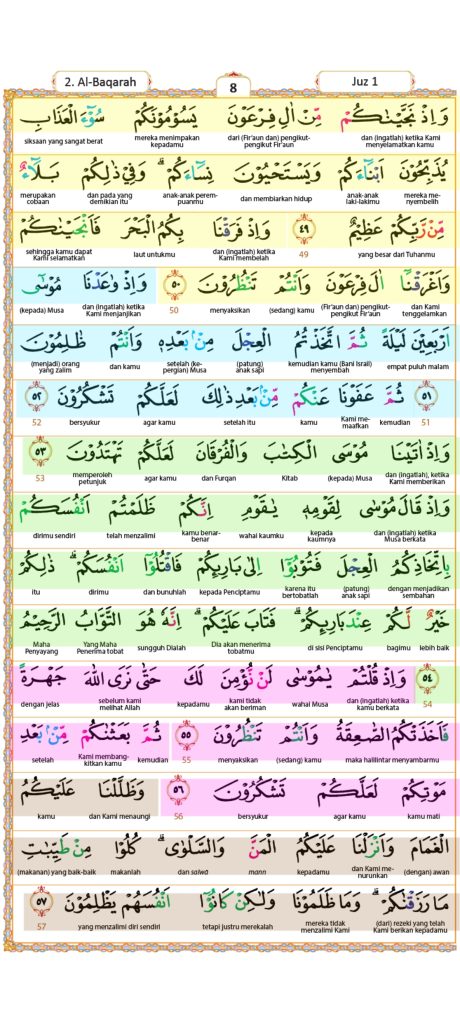 2. Al-Baqarah
8
Juz 1
وَاِذْ نَجَّيْنٰكُمْ مِّنْ اٰلِ فِرْعَوْنَ يَسُوْمُوْنَكُمْ سُوْۤءَ الْعَذَابِ
dan (ingatlah) ketika Kami menyelamatkan kamu dari (Fir'aun dan) pengikut-pengikut Fir'aun mereka menimpakan kepadamu siksaan yang sangat berat
يُذَبِّحُوْنَ اَبْنَاۤءَكُمْ وَيَسْتَحْيُوْنَ نِسَاۤءَكُمْ ۗ وَفِيْ ذٰلِكُمْ بَلَاۤءٌ
mereka me-nyembelih anak-anak laki-lakimu dan membiarkan hidup anak-anak perem-puanmu dan pada yang demikian itu merupakan cobaan
مِّنْ رَّبِّكُمْ عَظِيْمٌ ٤٩ وَاِذْ فَرَقْنَا بِكُمُ الْبَحْرَ فَاَنْجَيْنٰكُمْ
dari Tuhanmu yang besar 49 dan (ingatlah) ketika Kami membelah laut untukmu sehingga kamu dapat Kami selamatkan
وَاَغْرَقْنَآ اٰلَ فِرْعَوْنَ وَاَنْتُمْ تَنْظُرُوْنَ ٥٠ وَاِذْ وٰعَدْنَا مُوْسٰٓى
dan Kami tenggelamkan (Fir'aun dan) pengikut-pengikut Fir'aun (sedang) kamu menyaksikan 50 dan (ingatlah) ketika Kami menjanjikan (kepada) Musa
اَرْبَعِيْنَ لَيْلَةً ثُمَّ اتَّخَذْتُمُ الْعِجْلَ مِنْۢ بَعْدِهٖ وَاَنْتُمْ ظٰلِمُوْنَ
empat puluh malam kemudian kamu (Bani Israil) menyembah (patung) anak sapi setelah (ke-pergian) Musa dan kamu (menjadi) orang yang zalim
٥١ ثُمَّ عَفَوْنَا عَنْكُمْ مِّنْۢ بَعْدِ ذٰلِكَ لَعَلَّكُمْ تَشْكُرُوْنَ ٥٢
51 kemudian Kami me-maafkan kamu setelah itu agar kamu bersyukur 52
وَاِذْ اٰتَيْنَا مُوْسَى الْكِتٰبَ وَالْفُرْقَانَ لَعَلَّكُمْ تَهْتَدُوْنَ ٥٣
dan (ingatlah), ketika Kami memberikan (kepada) Musa Kitab dan Furqan agar kamu memperoleh petunjuk 53
وَاِذْ قَالَ مُوْسٰى لِقَوْمِهٖ يٰقَوْمِ اِنَّكُمْ ظَلَمْتُمْ اَنْفُسَكُمْ
dan (ingatlah) ketika Musa berkata kepada kaumnya wahai kaumku kamu benar-benar telah menzalimi dirimu sendiri
بِاتِّخَاذِكُمُ الْعِجْلَ فَتُوْبُوْٓا اِلٰى بَارِىِٕكُمْ فَاقْتُلُوْٓا اَنْفُسَكُمْ ۗ ذٰلِكُمْ
dengan menjadikan sembahan (patung) anak sapi karena itu bertobatlah kepada Penciptamu dan bunuhlah dirimu itu
خَيْرٌ لَّكُمْ عِنْدَ بَارِىِٕكُمْ ۗ فَتَابَ عَلَيْكُمْ ۗ اِنَّهٗ هُوَ التَّوَّابُ الرَّحِيْمُ
lebih baik bagimu di sisi Penciptamu Dia akan menerima tobatmu sungguh Dialah Yang Maha Penerima tobat Maha Penyayang
٥٤ وَاِذْ قُلْتُمْ يٰمُوْسٰى لَنْ نُّؤْمِنَ لَكَ حَتّٰى نَرَى اللّٰهَ جَهْرَةً
54 dan (ingatlah) ketika kamu berkata wahai Musa kami tidak akan beriman kepadamu sebelum kami melihat Allah dengan jelas
فَاَخَذَتْكُمُ الصّٰعِقَةُ وَاَنْتُمْ تَنْظُرُوْنَ ٥٥ ثُمَّ بَعَثْنٰكُمْ مِّنْۢ بَعْدِ
maka halilintar menyambarmu (sedang) kamu menyaksikan 55 kemudian Kami membang-kitkan kamu setelah
مَوْتِكُمْ لَعَلَّكُمْ تَشْكُرُوْنَ ٥٦ وَظَلَّلْنَا عَلَيْكُمُ
kamu mati agar kamu bersyukur 56 dan Kami menaungi kamu
الْغَمَامَ وَاَنْزَلْنَا عَلَيْكُمُ الْمَنَّ وَالسَّلْوٰى ۗ كُلُوْا مِنْ طَيِّبٰتِ
(dengan) awan dan Kami me-nurunkan kepadamu mann dan salwa makanlah (makanan) yang baik-baik
مَا رَزَقْنٰكُمْ ۗ وَمَا ظَلَمُوْنَا وَلٰكِنْ كَانُوْٓا اَنْفُسَهُمْ يَظْلِمُوْنَ ٥٧
(dari) rezeki yang telah Kami berikan kepadamu mereka tidak menzalimi Kami tetapi justru merekalah yang menzalimi diri sendiri 57